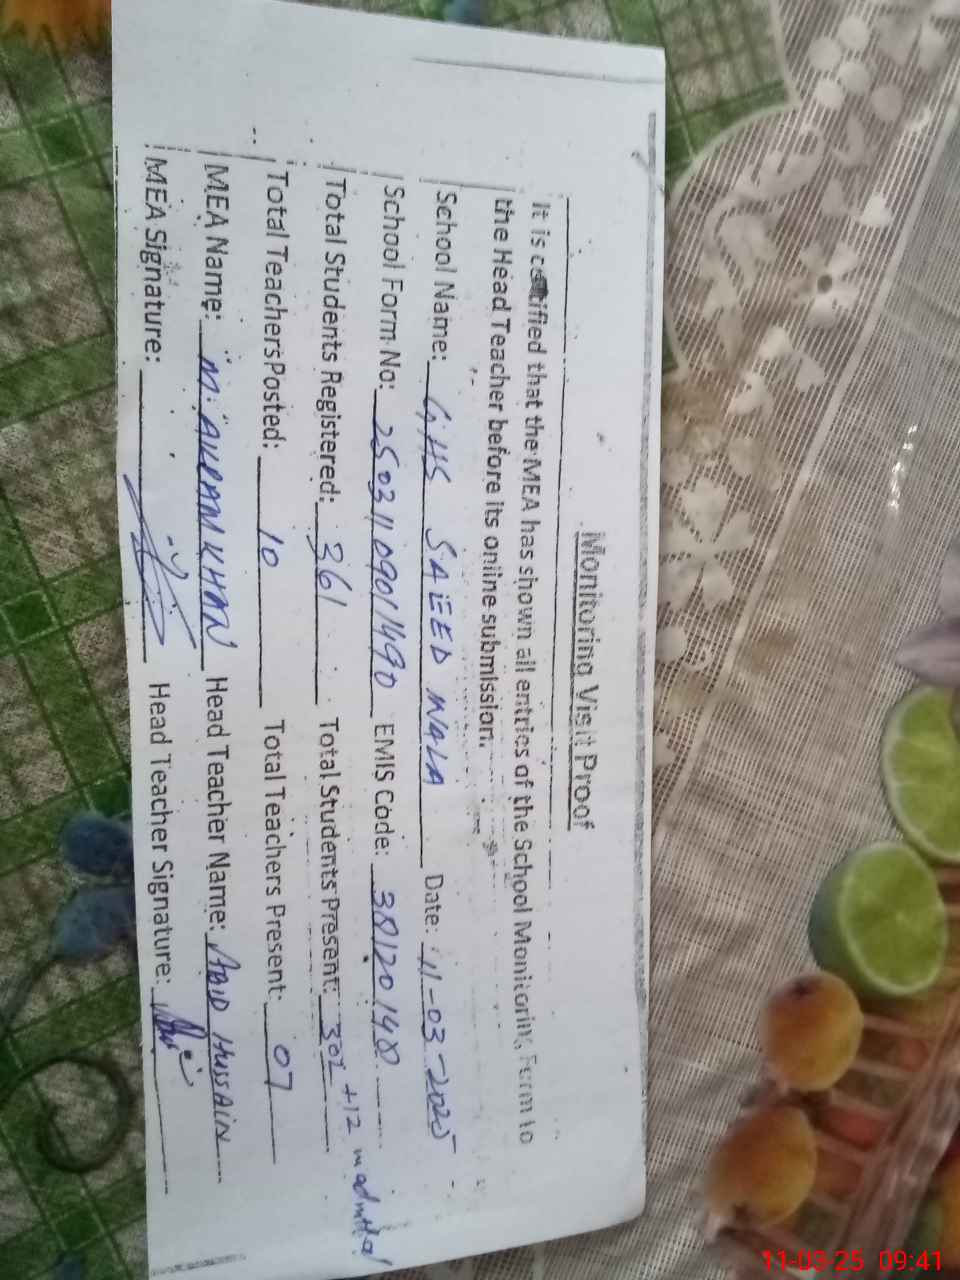 Monitoring Visit Proof
It is certified that the MEA has shown all entries of the School Monitoring Form to
the Head Teacher before its online submission.
School Name: GHS SAEED WALA Date: 11-03-2025
School Form No: 25031109011490 EMIS Code: 38120148
Total Students Registered: 361 Total Students Present: 302 +12
Total Teachers Posted: 10 Total Teachers Present: 07
MEA Name: M. AKRAM KHAN Head Teacher Name: ABID HUSSAIN
MEA Signature: Head Teacher Signature:
11-03-25 09:41